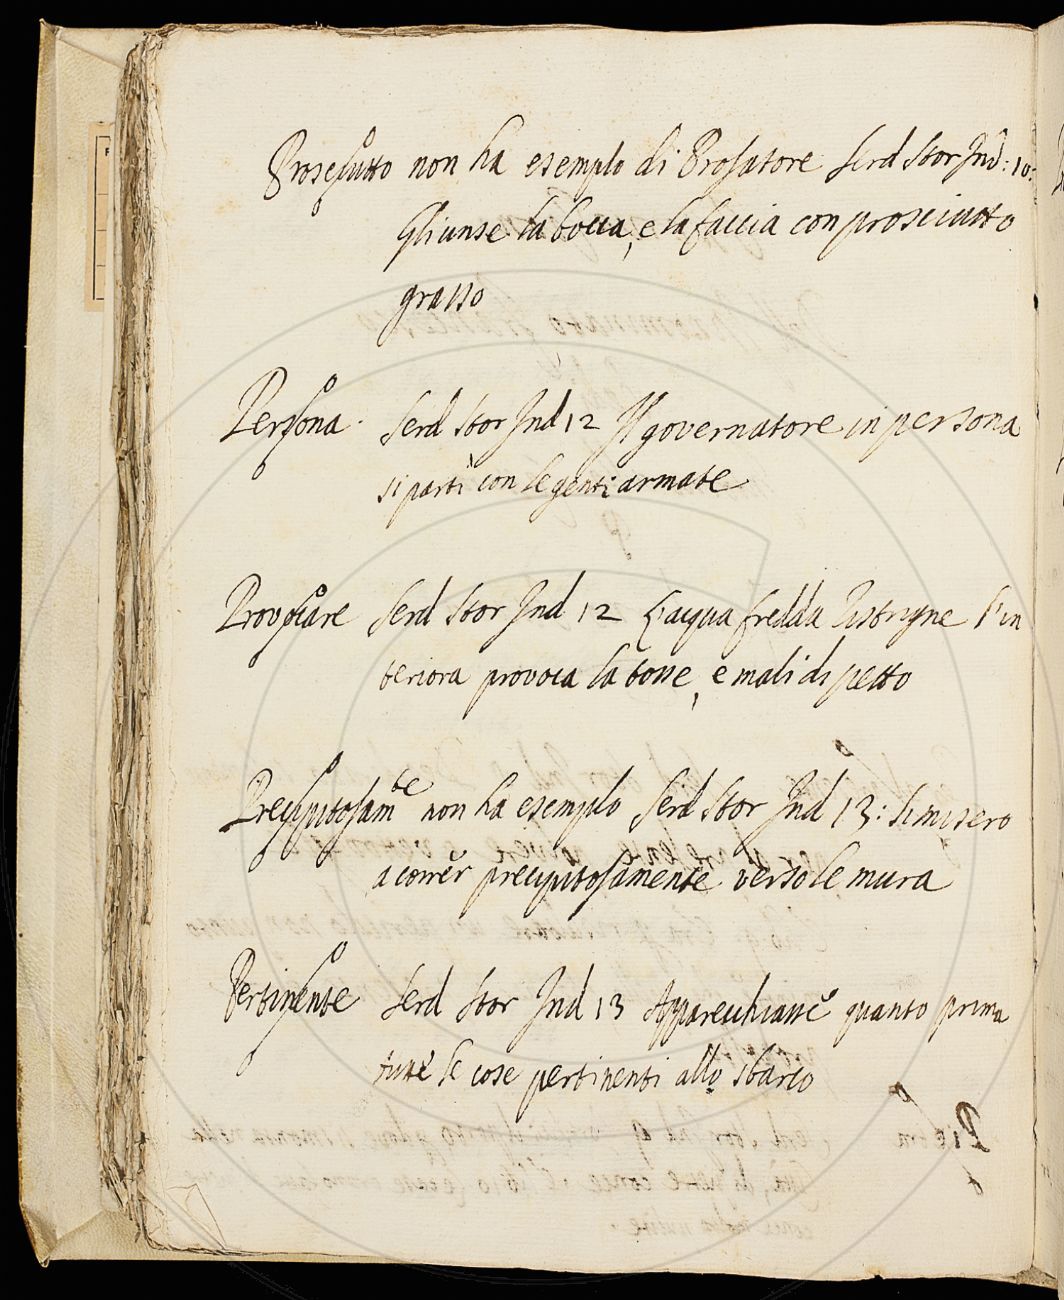 Prosciutto non ha esempio di Prosatore Serd Stor Ind: 10:
Gli unse la bocca, e la faccia con prosciutto
grasso
Persona. Serd Stor Ind 12 Il governatore in persona
si partì con le genti armate
Provocare Serd Stor Ind 12 L'acqua fredda ristrigne l'in
teriora provoca la tosse, e mali di petto
Precipitosam.te non ha esempio Serd Stor Ind 13: Si misero
a correr precipitosamente verso le mura
Pertinente Serd Stor Ind 13 Apparecchiasse quanto prima
tutte le cose pertinenti allo sbarco